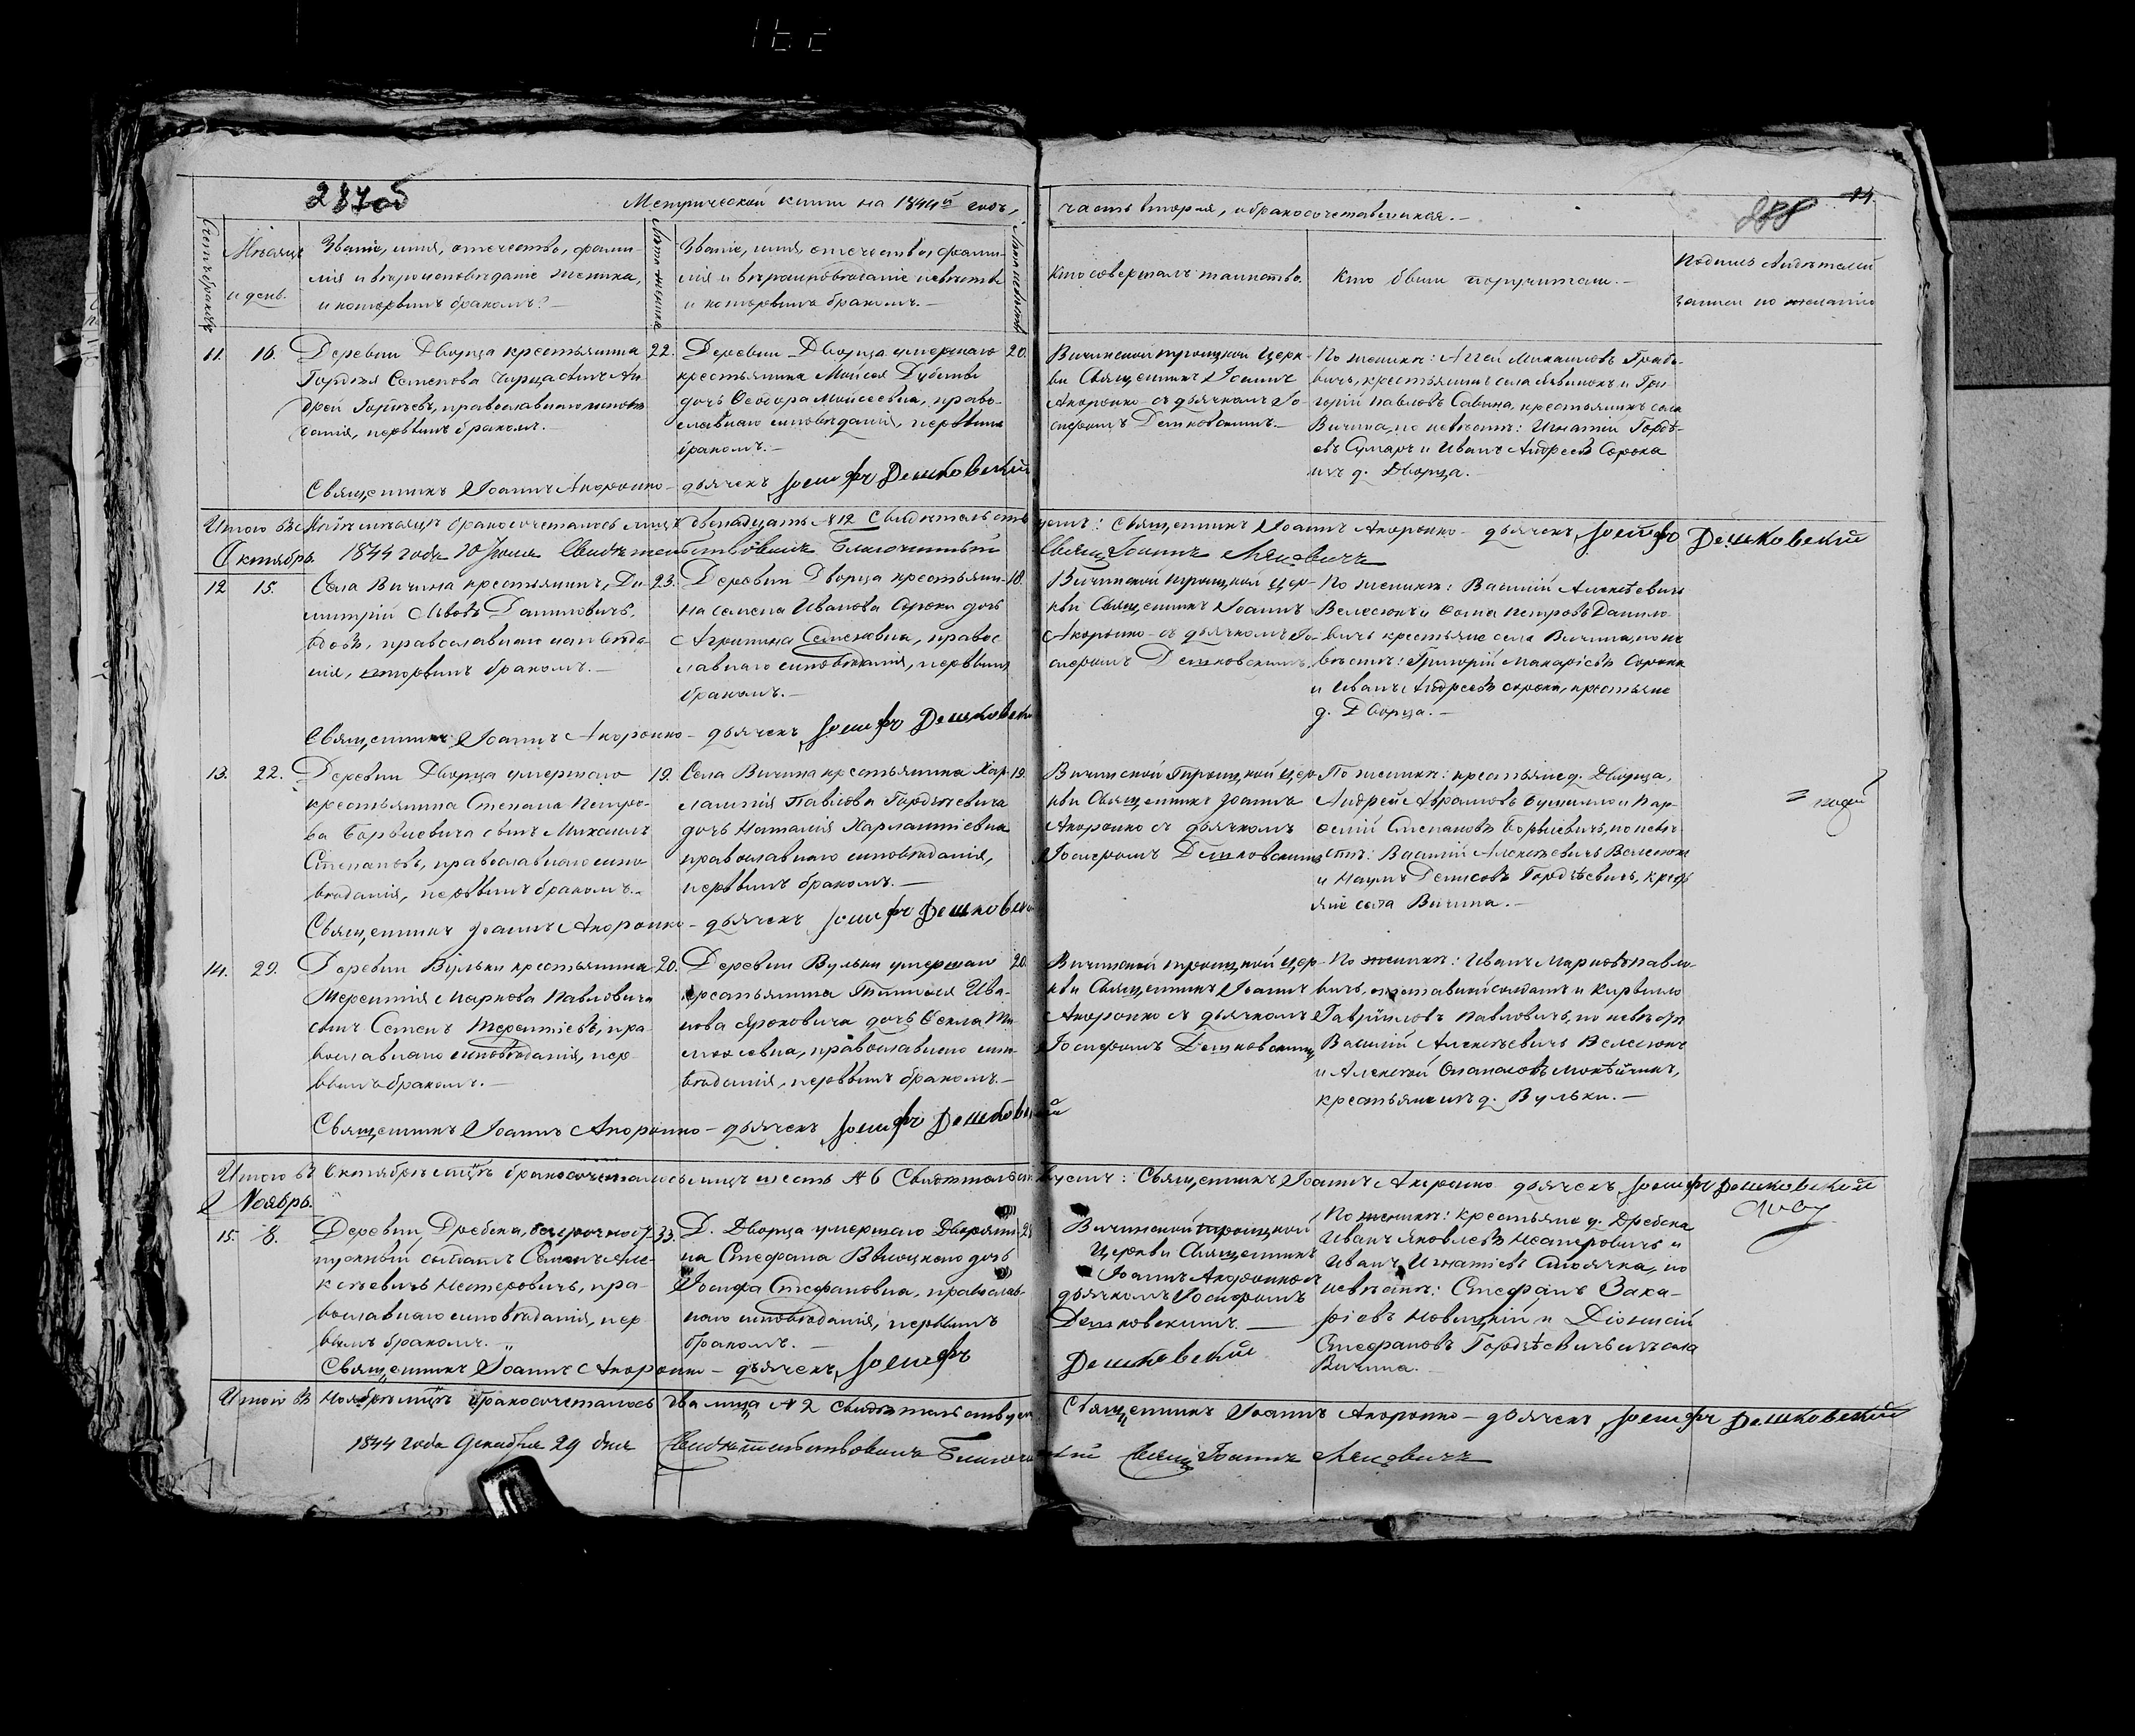 287об
Метрической книги на 1844й годъ,
часть вторая, о бракосочетавшихся.-
888
Счетъ браковъ
Мѣсяцъ
и день.
Званіе, имя, отечество, фами-
лія и вѣроисповѣданіе жениха,
и которымъ бракомъ?-
Лѣта жениха
Званіе, имя, отечество, фами-
лія и вѣроисповѣданіе невѣсты
и которымъ бракомъ.-
Лѣта невѣсты
Кто совершалъ таинство.
Кто были поручители.-
Подпись свидѣтелей
записи по желанію
11.
16.
Деревни Дворца крестьянина
Гордея Семенова сынъ Ан-
дрей Гордѣевъ, православнаго исповѣ-
данія, первымъ бракомъ.-
22.
Деревни Дворца умершаго
крестьянина Мойсея
дочь Ѳеодора Мойсеевна, право-
славнаго исповѣданія, первымъ
бракомъ.-
20.
Вичинской троицкой Церк-
ви Священникъ Іоаннъ
Аноронко съ дьячкомъ Іо-
сифомъ Дешковскимъ.-
По женихѣ: Михаиловъ
крестьянинъ села и Гри-
горій Павловъ Савина, крестьянинъ села
Вичина, по невѣстѣ: Игнатій Гордѣ-
евъ и Иванъ Андреевъ Сорока
изъ д. Дворца.-
Священникъ Іоаннъ Аноронко - дьячекъ Іосифъ Дешковский
Итого въ мѣсяцѣ бракосочеталось лицъ двенадцать №12 Свидѣтельствуемъ: Священникъ Іоаннъ Аноронко - дьячекъ Іосифъ Дешковский
Октябрь.
1844 года 10 Свидѣтельствовалъ Благочинный Свящ. Іоаннъ
12
15.
Села Вичина крестьянинъ, Ди-
митрій Львовъ Даниловичъ,
вдовъ, православнаго исповѣда-
нія, вторымъ бракомъ.-
23.
Деревни Дворца крестьяни-
на Семена Иванова Сороки дочь
Агрипина Семеновна, правос-
лавнаго исповѣданія, первымъ
бракомъ.-
18.
Вичинской троицкой цер-
кви Священникъ Іоаннъ
Аноронко съ дьячкомъ Іо-
сифомъ Дешковскимъ.
По женихѣ: Василій Алексѣевичъ
Велесюкъ и Ѳома Петровъ Данило-
вичъ крестьяне села Вичина, по не-
вѣстѣ: Григорій Макаріевъ Сорока
и Иванъ Андреевъ Сорока, крестьяне
д. Дворца.-
Священникъ Іоаннъ Аноронко - дьячекъ Іосифъ Дешковский
13.
22.
Деревни Дворца умершаго
крестьянина Степана Петро-
ва сынъ Михаилъ
Степановъ, православнаго испо-
вѣданія, первымъ бракомъ.-
19.
Села Вичина крестьянина Хар-
лампія Павлова Гордѣевича
дочь Наталія Харлампіевна
православнаго исповѣданія,
первымъ бракомъ.-
19.
Вичинской Троицкой Цер-
кви Священникъ Іоаннъ
Аноронко съ дьячкомъ
Іосифомъ Дешковскимъ
По женихѣ: крестьяне д. Дворца,
Андрей Аврамовъ и Пар-
Степановъ по невѣ-
стѣ: Василій Алексѣевичъ Велесюкъ
и Наумъ Денисовъ Гордѣевичъ, крестъ-
яне села Вичина.-
Священникъ Іоаннъ Аноронко - дьячекъ Іосифъ Дешковский
14.
29.
Деревни Вульки крестьянина
Терентія Маркова Павловича
сынъ Семенъ Терентіевъ, пра-
вославнаго исповѣданія, пер-
вымъ бракомъ.-
20.
Деревни Вульки умершаго
крестьянина Тимоѳея Ива-
нова дочь Ѳекла Ти-
моѳеевна, православнаго испо-
вѣданія, первымъ бракомъ.-
20.
Вичинской троицкой цер-
кви Священникъ Іоаннъ
Аноронко съ дьячкомъ
Іосифомъ Дешковскимъ
По женихѣ: Иванъ Марковъ Павло-
вичъ, отставной солдатъ и Кирилло
Гавриловъ Павловичъ, по невѣстѣ
Василій Алексѣевичъ Велесюкъ
и Алексѣй
крестьянинъ д. Вульки.-
Священникъ Іоаннъ Аноронко - дьячекъ Іосифъ Дешковский
Итого въ Октябрѣ мѣсяцѣ бракосочеталось лицъ шесть №6 Свидѣтельствуемъ: Священникъ Іоаннъ Аноронко дьячекъ Іосифъ Дешковский
Ноябрь.
15.
8.
Деревни Дребска, безсрочно от-
пускный солдатъ Семенъ Але-
ксѣевичъ Нестеровичъ, пра-
вославнаго исповѣданія, пер-
вымъ бракомъ.-
33.
Д. Дворца умершаго Дворяни-
на Стефана Высоцкаго дочь
Іосифа Стефановна, православ-
наго исповѣданія, первымъ
бракомъ.-
Вичинской троицкой
Церкви Священникъ
Іоаннъ Аноронко съ
дьячкомъ Іосифомъ
Дешковскимъ.-
По женихѣ: крестьяне д. Дребска
Иванъ Яковлевъ Нестеровичъ и
Иванъ Игнатіевъ по
невѣстѣ: Стефанъ Заха-
ріевъ Новицкій и Діонисій
Стефановъ Гордѣевичъ изъ села
Вичина.-
Священникъ Іоаннъ Аноронко - дьячекъ Іосифъ Дешковский
Итого въ Ноябрѣ мѣсяцѣ бракосочеталось два лица №2 Свидѣтельствуемъ Священникъ Іоаннъ Аноронко - дьячекъ Іосифъ Дешковский
1844 года Декабря 29 дня Свидѣтельствовалъ Благочинный Свящ. Іоаннъ